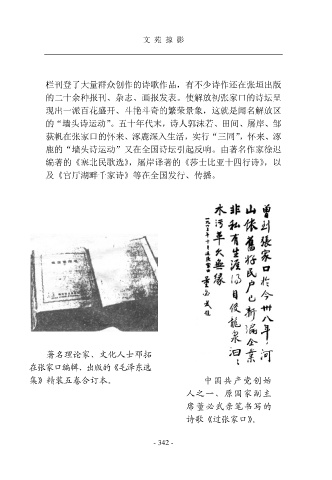 文苑掠影
栏刊登了大量群众创作的诗歌作品，有不少诗作还在张垣出版
的二十余种报刊、杂志、画报发表。使解放初张家口的诗坛呈
现出一派百花盛开、斗艳斗奇的繁荣景象，这就是闻名解放区
的“墙头诗运动”。五十年代末，诗人郭沫若、田间、屠岸、邹
荻帆在张家口的怀来、涿鹿深入生活，实行“三同”，怀来、涿
鹿的“墙头诗运动”又在全国诗坛引起反响。由著名作家徐迟
编著的《塞北民歌选》，屠岸译著的《莎士比亚十四行诗》，以
及《官厅湖畔千家诗》等在全国发行、传播。
曾到张家口於今卅八年
河山依旧好民户已新
企业
非私有生涯
水污早欠无缘
著名理论家、文化人士邓拓
在张家口编辑、出版的《毛泽东选
集》精装五卷合订本。
中国共产党创始
人之一、原国家副主
席董必武亲笔书写的
诗歌《过张家口》。
- 342 -